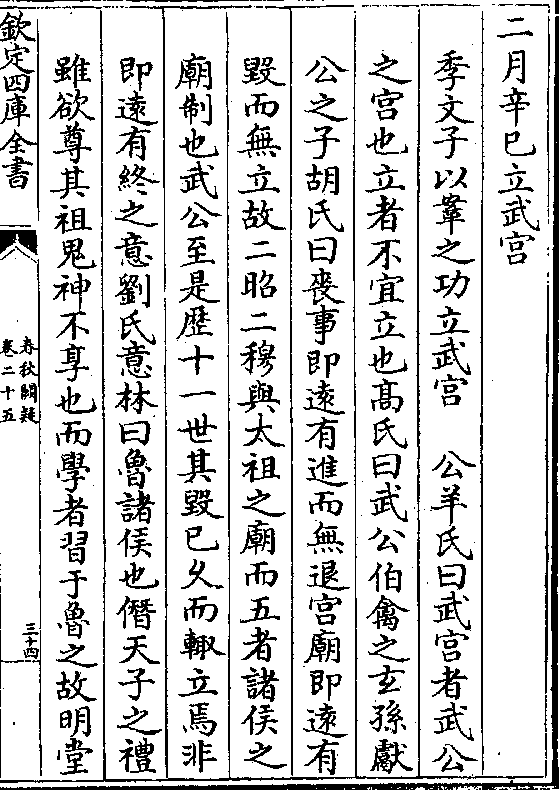 二月辛巳立武宫
季文子以鞌之功立武宫　公羊氏曰武宫者武公
之宫也立者不宜立也髙氏曰武公伯禽之玄孫獻
公之子胡氏曰喪事即逺有進而無退宫廟即逺有
毁而無立故二昭二穆與太祖之廟而五者諸侯之
廟制也武公至是歴十一世其毁已乆而輙立焉非
即逺有終之意劉氏意林曰魯諸侯也僭天子之禮
雖欲尊其祖鬼神不享也而學者習于魯之故明堂
欽定四庫全書
春秋闕疑
卷二十五
三十四